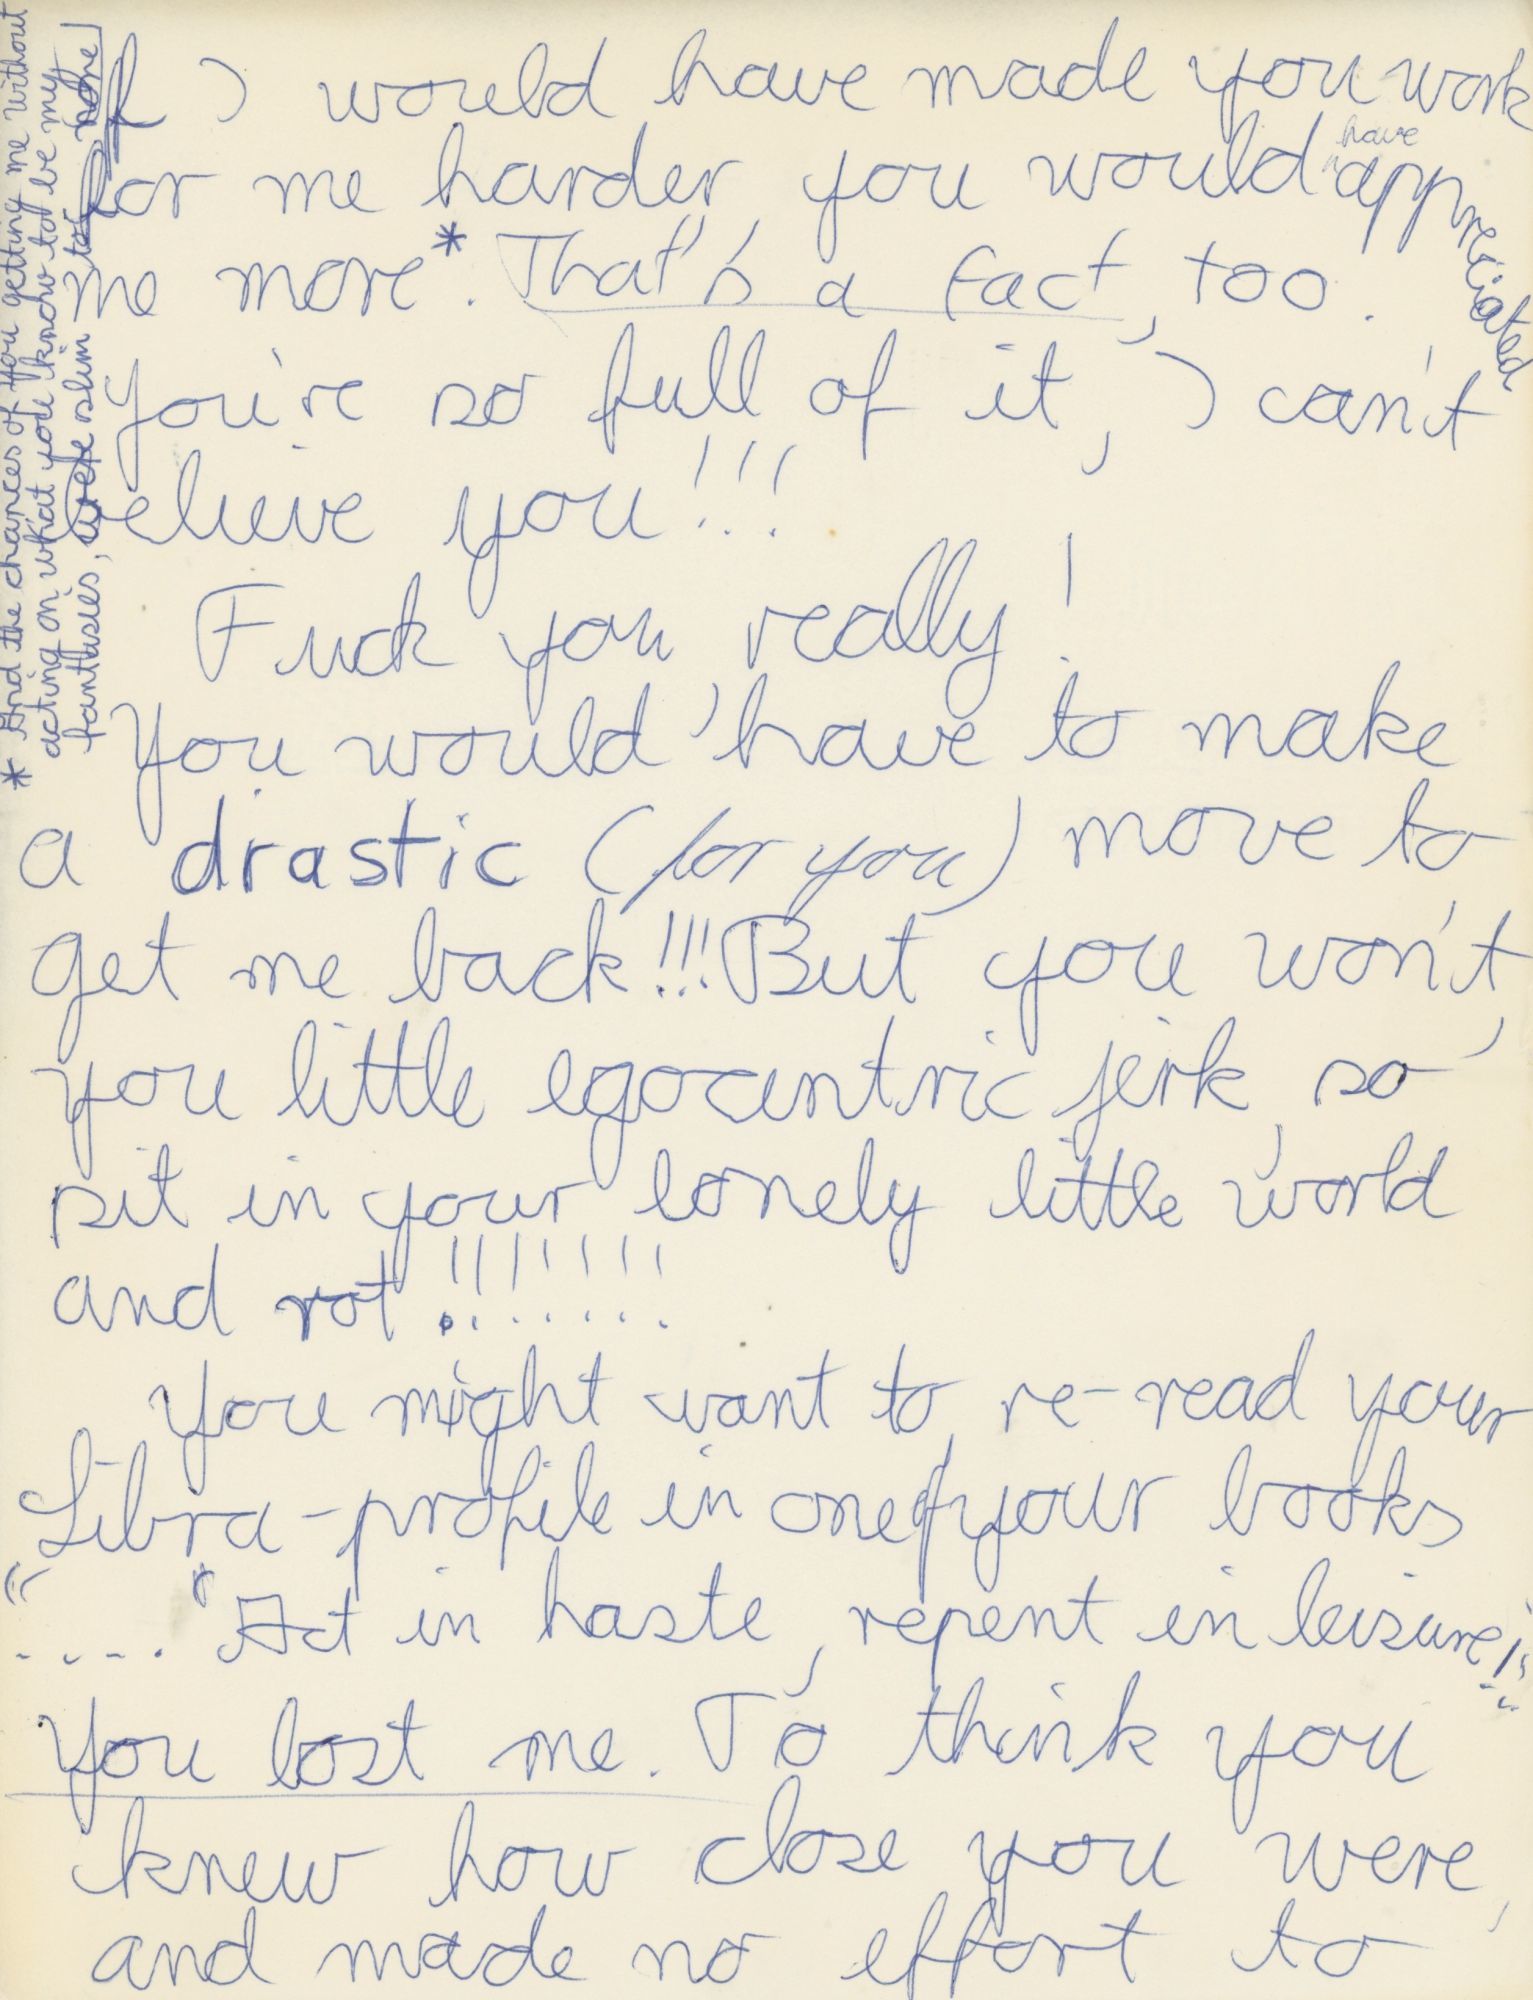 If I would have made you work
for me harder, you would have appreciated
me more*. That's a fact, too.
You're so full of it, I can't
believe you!!!
Fuck you really!
You would have to make
a drastic (for you) move to
get me back!!! But you won't,
you little egocentric jerk, so
sit in your lonely little world
and rot!!!!!!!!
You might want to re-read your
Libra-profile in one of your books
..... "Act in haste, repent in leisure!"
You lost me. To think you
knew how close you were,
and made no effort to
* And the chances of you getting me without
acting on what you know to be my
fantasies, were slim to none